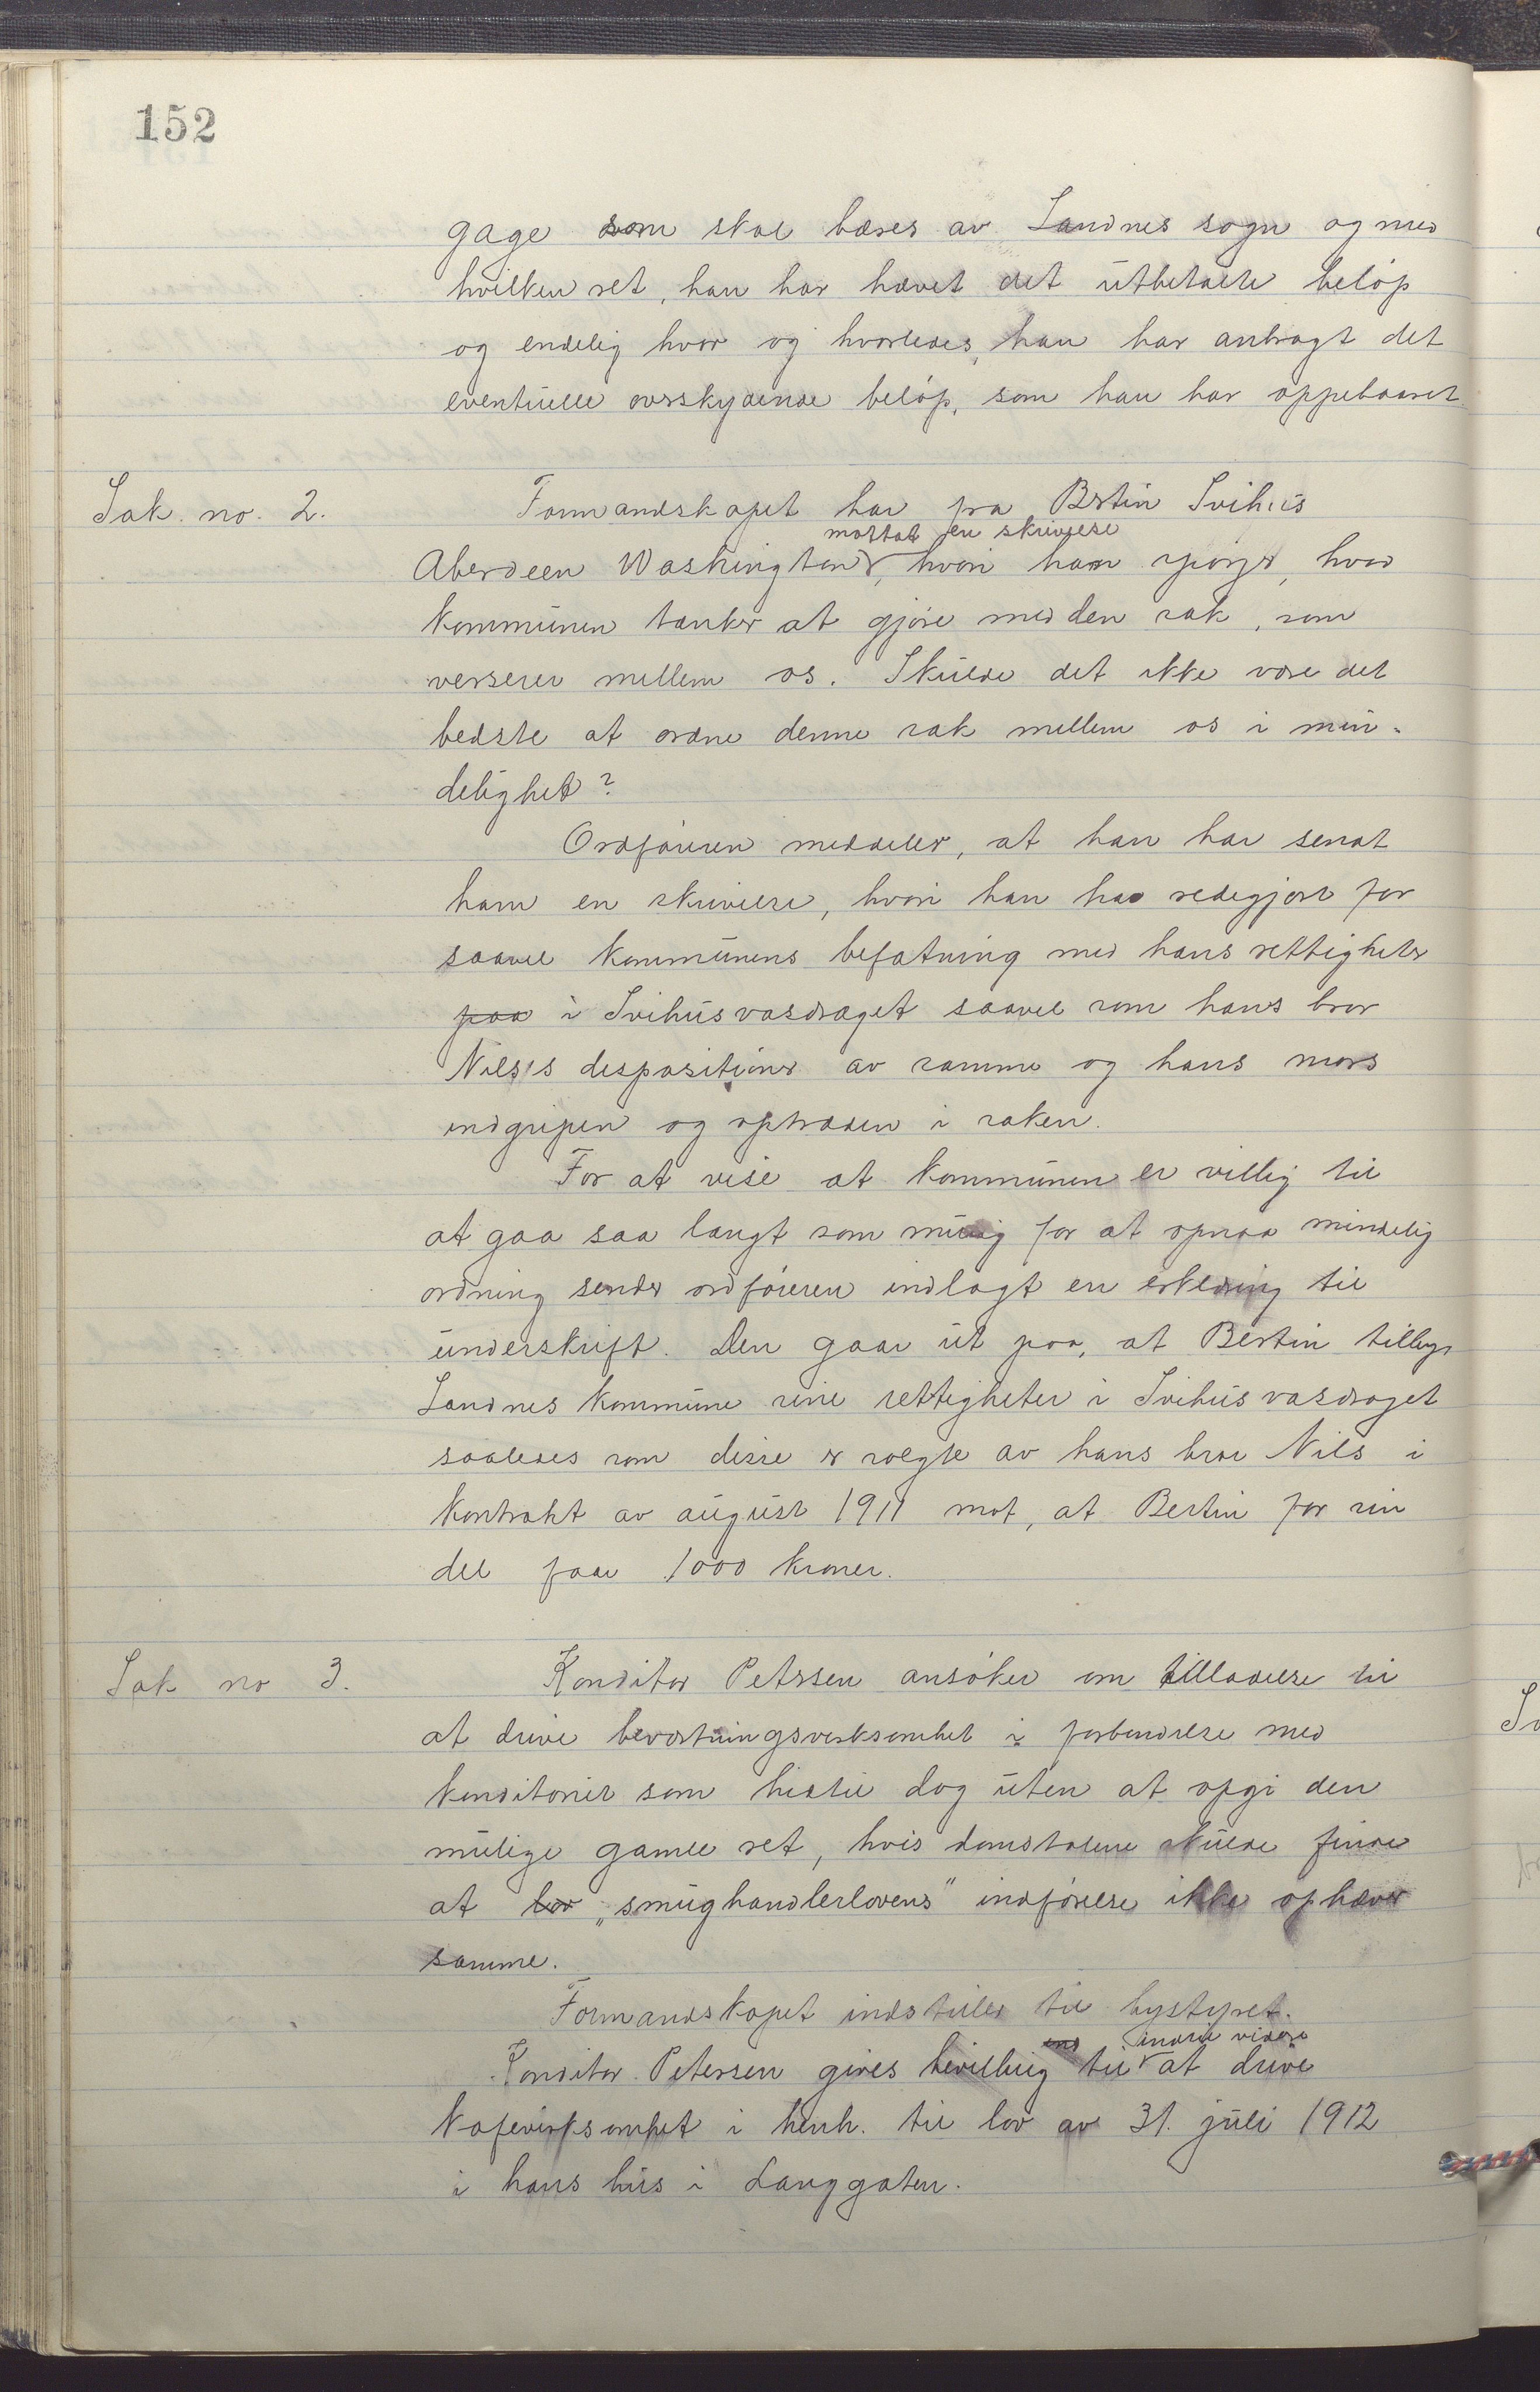 152
gage som skal bæres av Sandnes sogn og med
hvilken ret, han har hævet det utbetalte beløp
og endelig hvor og hvorledes, han har anbragt det
eventuelle overskydende beløp, som han har oppebaaret.
Sak no. 2.
Formandskapet har fra Bertin Svihus
mottat en skrivelse
Aberdeen Washington, hvori han spørger, hvad
kommunen tænker at gjøre med den sak, som
verserer mellem os. Skulde det ikke være det
bedste at ordne denne sak mellem os i min-
delighet?
Ordføreren meddeler, at han har sendt
ham en skrivelse, hvori han har redegjort for
saavel kommunens befatning med hans rettigheter
paa i Svihusvasdraget saavel som hans bror
Nilses dispositioner av samme og hans mors
indgripen og optræden i saken.
For at vise at kommunen er villig til
at gaa saa langt som mulig for at opnaa mindelig
ordning sender ordføreren indlagt en erklæring til
underskrift. Den gaar ut paa, at Bertin selger
Sandnes kommune sine rettigheter i Svihusvasdraget
saaledes som disse er solgte av hans bror Nils i
kontrakt av august 1911 mot, at Bertin for sin
del faar 1000 kroner.
Sak no 3.
Konditor Petersen ansøker om tilladelse til
at drive bevertningsverksomhet i forbindelse med
konditoriet som hittil dog uten at opgi den
mulige gamle ret, hvis domstolene skulde finde
at lov "smughandlerlovens" indførelse ikke ophæver
samme.
Formandskapet indstiller til bystyret.
ens indtil videre
Konditor Petersen gives bevilling til at drive
Kafevirksomhet i henh. til lov av 31. juli 1912
i hans hus i Langgaten.